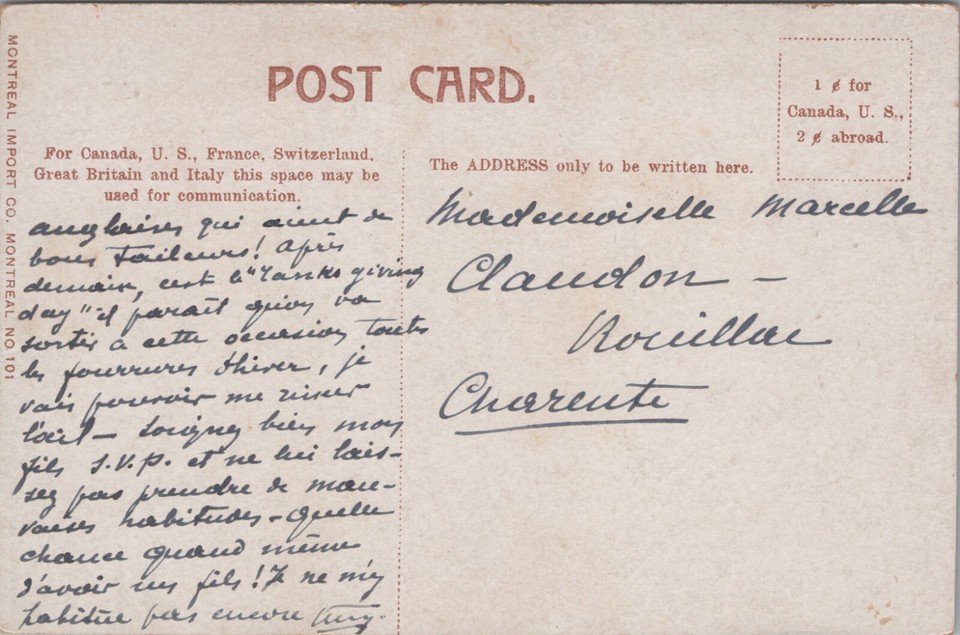 POST CARD.
1 ¢ for
Canada, U. S.,
2 ¢ abroad.
MONTREAL IMPORT CO. MONTREAL NO. 101
For Canada, U. S., France, Switzerland,
Great Britain and Italy this space may be
used for communication.
The ADDRESS only to be written here.
anglaises qui aient de
bons tailleurs! Après
demain, c'est le "Tanks giving
day" il parait qu'on va
sortir à cette occasion toutes
les fourrures d'hiver, je
vais pouvoir me rincer
l'œil – Soignez bien mon
fils S.V.P. et ne lui lais-
sez pas prendre de mau-
vaises habitudes – Quelle
chance quand même
d'avoir un fils! Je ne m'y
habitue pas encore
Mademoiselle Marcelle
Claudon –
Rouillac
Charente